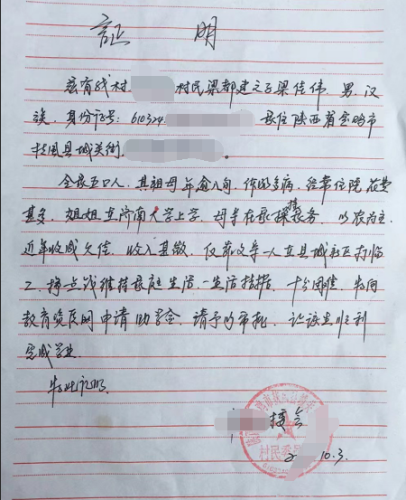 证明
兹有我村 村民梁都建之子梁佳伟 男,汉
族,身份证号:610324 家住陕西省宝鸡市
扶风县城关街
全家五口人,其祖母年逾八旬,体弱多病,经常住院花费
甚多,姐姐在济南大学上学,母亲在家操持家务,以农为主,
近年收成欠佳,收入甚微,仅靠父亲一人在县城社区打临
工,挣点钱维持家庭生活,生活拮据,十分困难,
教育资 网申请助学金,请予以审批,让该生顺利
完成学业
特此证明
村委会
村民委员
10.3.